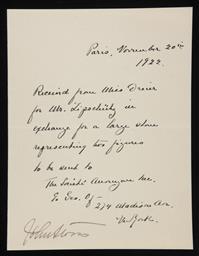 Paris, November 20th
1922.
Received from Miss Dreier
for Mr. Lipschitz in
exchange for a large stone
representing two figures
to be sent to
The Société Anonyme Inc.
Ex. Of 274 Madison Ave.
N. York.